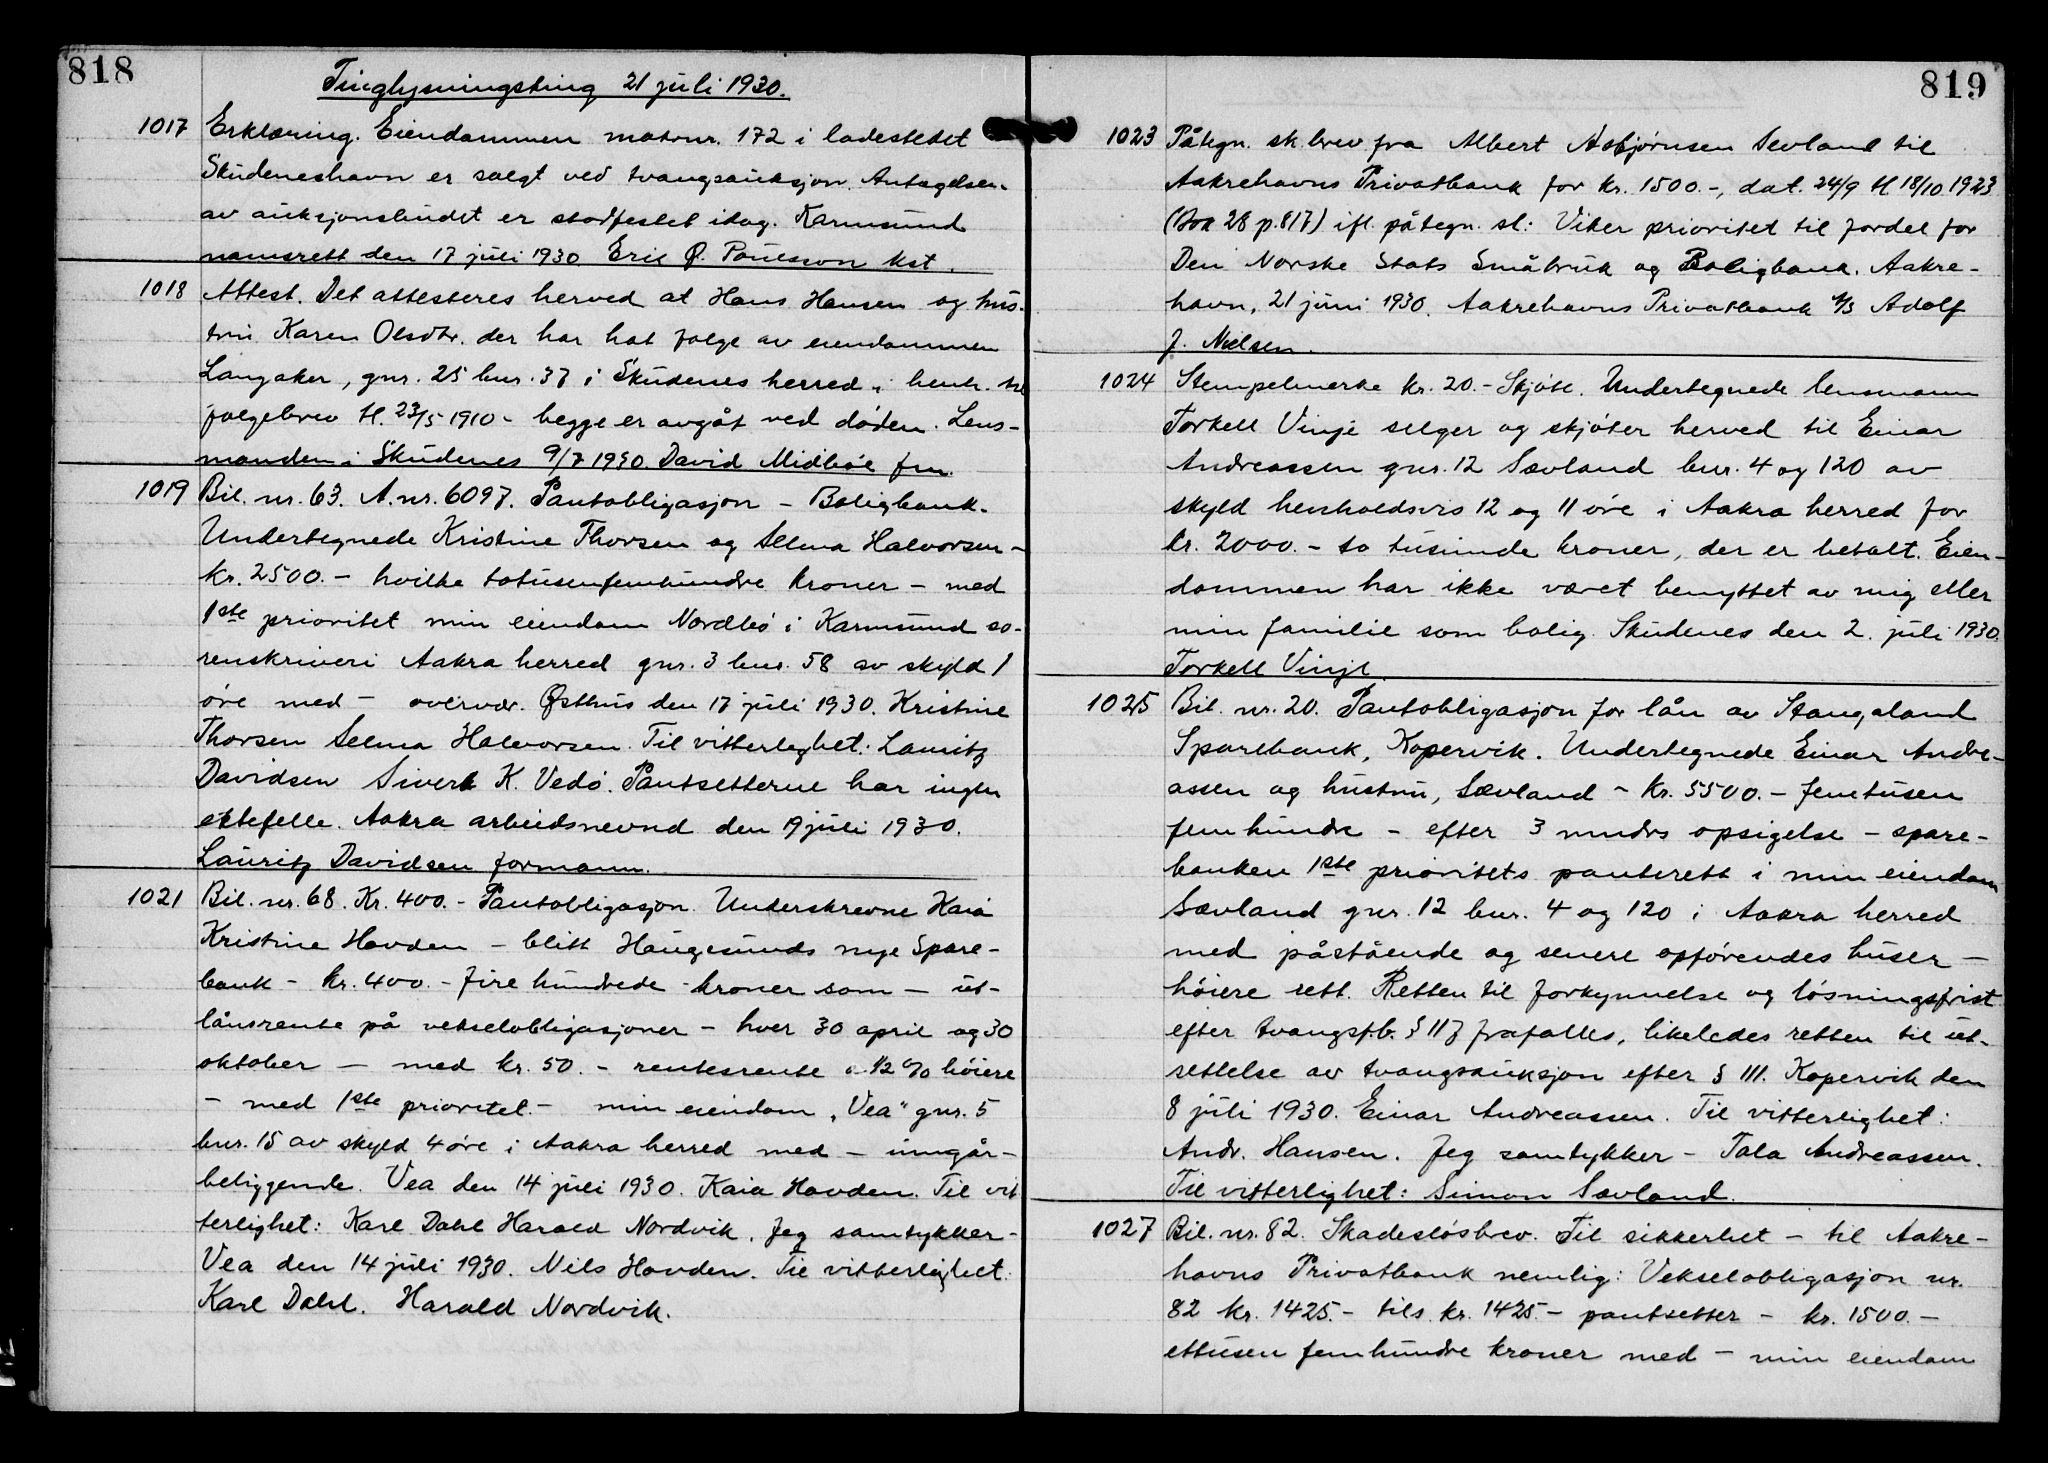 818
Tinglysningsting 21 juli 1930.
1017 Erklæring. Eiendommen matrnr. 172 i ladestedet
Skudeneshavn er solgt ved tvangsauksjon. Antagelsen
av auksjonsbudet er stadfestet idag. Karmsund
namsrett den 17 juli 1930 Eric Ø. Poulsson kst.
1018 Attest. Det attesteres herved at Hans Hansen og hus-
tru Karen Olsdtr. der har hat folge av eiendommen
Langaker, gnr. 25 bnr. 37 i Skudenes herred i henh. til
folgebrev tl. 23/5 1910 - begge er avgåt ved døden. Lens-
manden i Skudenes 9/7 1930. David Midbøe fm.
1019 Bil. nr. 63. A. nr. 6097. Pantobligasjon - Boligbank.
Undertegnede Kristine Thorsen og Selma Halvorsen -
kr. 2500. - hvilke totusenfemhundre kroner - med
1ste prioritet min eiendom Nordbø i Karmsund so-
renskriveri Aakra herred gnr. 3 bnr. 58 av skyld 1
øre med - overvær. Østhus den 17 juli 1930. Kristine
Thorsen Selma Halvorsen. Til vitterlighet: Lauritz
Davidsen Sivert K. Vedø. Pantsetterne har ingen
ektefelle. Aakra arbeidsnevnd den 19 juli 1930.
Lauritz Davidsen formann.
1021 Bil. nr. 68. Kr. 400. - Pantobligasjon. Underskrevne Kaia
Kristine Hovden - blitt Haugesunds nye Spare-
bank - kr. 400. - fire hundrede - kroner som - ut-
lånsrente på vekselobligasjoner - hver 30 april og 30
oktober - med kr. 50. - rentesrente 1/2 % høiere
- med 1ste prioritet. - min eiendom „Vea" gnr. 5
bnr. 15 av skyld 4 øre i Aakra herred med - inngår -
beliggende. Vea den 14 juli 1930. Kaia Hovden. Til vit
terlighet: Karl Dahl Harald Nordvik. Jeg samtykker -
Vea den 14 juli 1930. Nils Hovden. Til vitterlighet:
Karl Dahl. Harald Nordvik.
819
1023 Påtegn. sk. brev fra Albert Asbjørnsen Sevland til
Aakrehavns Privatbank for kr. 1500.-, dat. 24/9 tl 18/10 1923
(Bok 28 p. 817) ifl. påtegn. sl.: Viker prioritet til fordel for
Den Norske Stats Småbruk og Boligbank. Aakre-
havn, 21 juni 1930. Aakrehavns Privatbank A/S Adolf
J. Nielsen.
1024 Stempelmerke kr. 20. - Skjøte. Undertegnede lensmann
Torkell Vinje selger og skjøter herved til Einar
Andreassen gnr. 12 Sævland bnr. 4 og 120 av
skyld henholdsvis 12 og 11 øre i Aakra herred for
kr. 2000. - to tusinde kroner, der er betalt. Eien-
dommen har ikke været benyttet av mig eller
min familie som bolig. Skudenes den 2. juli 1930.
Torkell Vinje.
1025 Bil. nr. 20. Pantobligasjon for lån av Stangaland
Sparebank, Kopervik. Undertegnede Einar Andre-
assen og hustru, Sævland - kr. 5500. - femtusen
femhundre - efter 3 mndrs opsigelse - spare-
banken 1ste prioritets panterett i min eiendom
Sævland gnr. 12 bnr. 4 og 120 i Aakra herred
med påstående og senere opførendes huser -
høiere rett. Retten til forkynnelse og løsningsfrist
efter tvangsf.b. § 117 frafalles, likeledes retten til ut-
settelse av tvangsauksjon efter § 111. Kopervik den
8 juli 1930. Einar Andreassen. Til vitterlighet:
Andr. Hansen. Jeg samtykker - Tala Andreassen.
Til vitterlighet: Simon Sævland.
1027 Bil. nr. 82. Skadesløsbrev. Til sikkerhet - til Aakre-
havns Privatbank nemlig: Vekselobligasjon nr.
82 kr. 1425. - tils. kr. 1425. - pantsetter - kr. 1500. -
ettusen femhundre kroner med - min eiendom